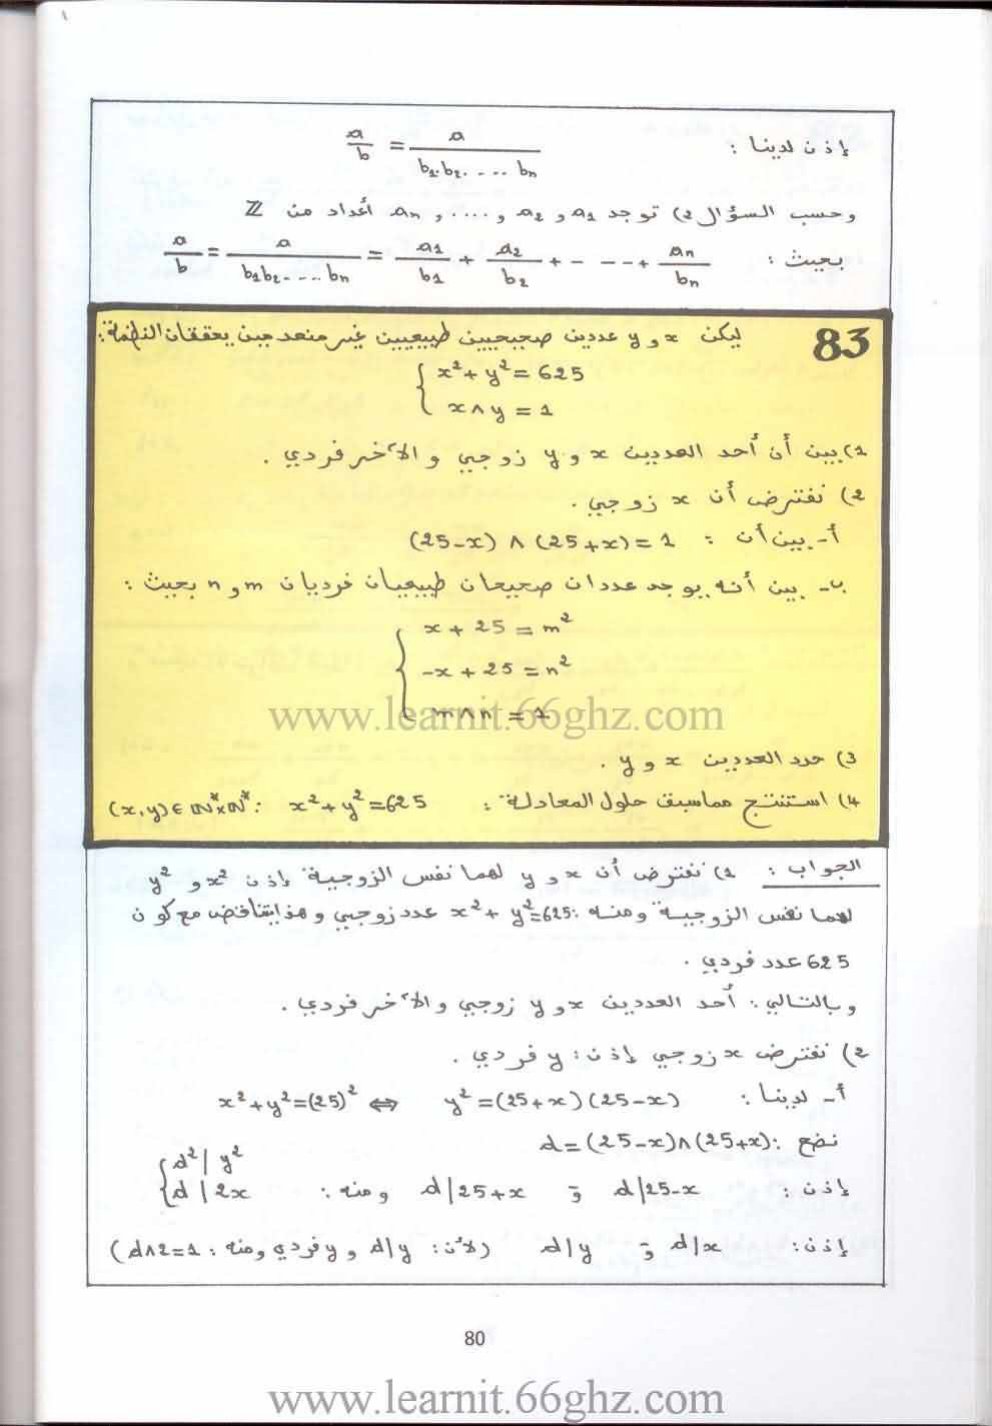 إذن لدينا : a/b = a/(b₁.b₂.-...bₙ)
و حسب السؤال 2) توجد a₁ و a₂ و .... و aₙ أعداد من ℤ
بحيث : a/b = a/(b₁b₂-...bₙ) = a₁/b₁ + a₂/b₂ + - - - - + aₙ/bₙ
83 ليكن x و y عددين صحيحيين طبيعيين غير منعدمين يحققان النظمة :
{ x² + y² = 625
x ∧ y = 1
1) بين أن أحد العددين x و y زوجي و الآخر فردي .
2) نفترض أن x زوجي .
أ- بين أن : (25-x) ∧ (25+x) = 1
ب- بين أنه يوجد عددان صحيحان طبيعيان فرديان m و n بحيث :
{ x + 25 = m²
-x + 25 = n²
m ∧ n = 1
www.learnit.66ghz.com
3) حدد العددين x و y .
4) استنتج مماسبق حلول المعادلة : x² + y² = 625 :(x,y) ∈ ℕ*×ℕ*
الجواب : 1) نفترض أن x و y لهما نفس الزوجية إذن x² و y²
لهما نفس الزوجية ومنه : x² + y² = 625 عدد زوجي و هذا يتناقض مع كون
625 عدد فردي .
و بالتالي : أحد العددين x و y زوجي و الآخر فردي .
2) نفترض x زوجي إذن : y فردي .
أ- لدينا : x² + y² = (25)² ⇔ y² = (25+x)(25-x)
نضع : d = (25-x)∧(25+x)
إذن : d|25-x و d|25+x ومنه : { d²|y²
d|2x
إذن : d|x و d|y (لأن : d|y و y فردي ومنه : d∧2=1)
80
www.learnit.66ghz.com